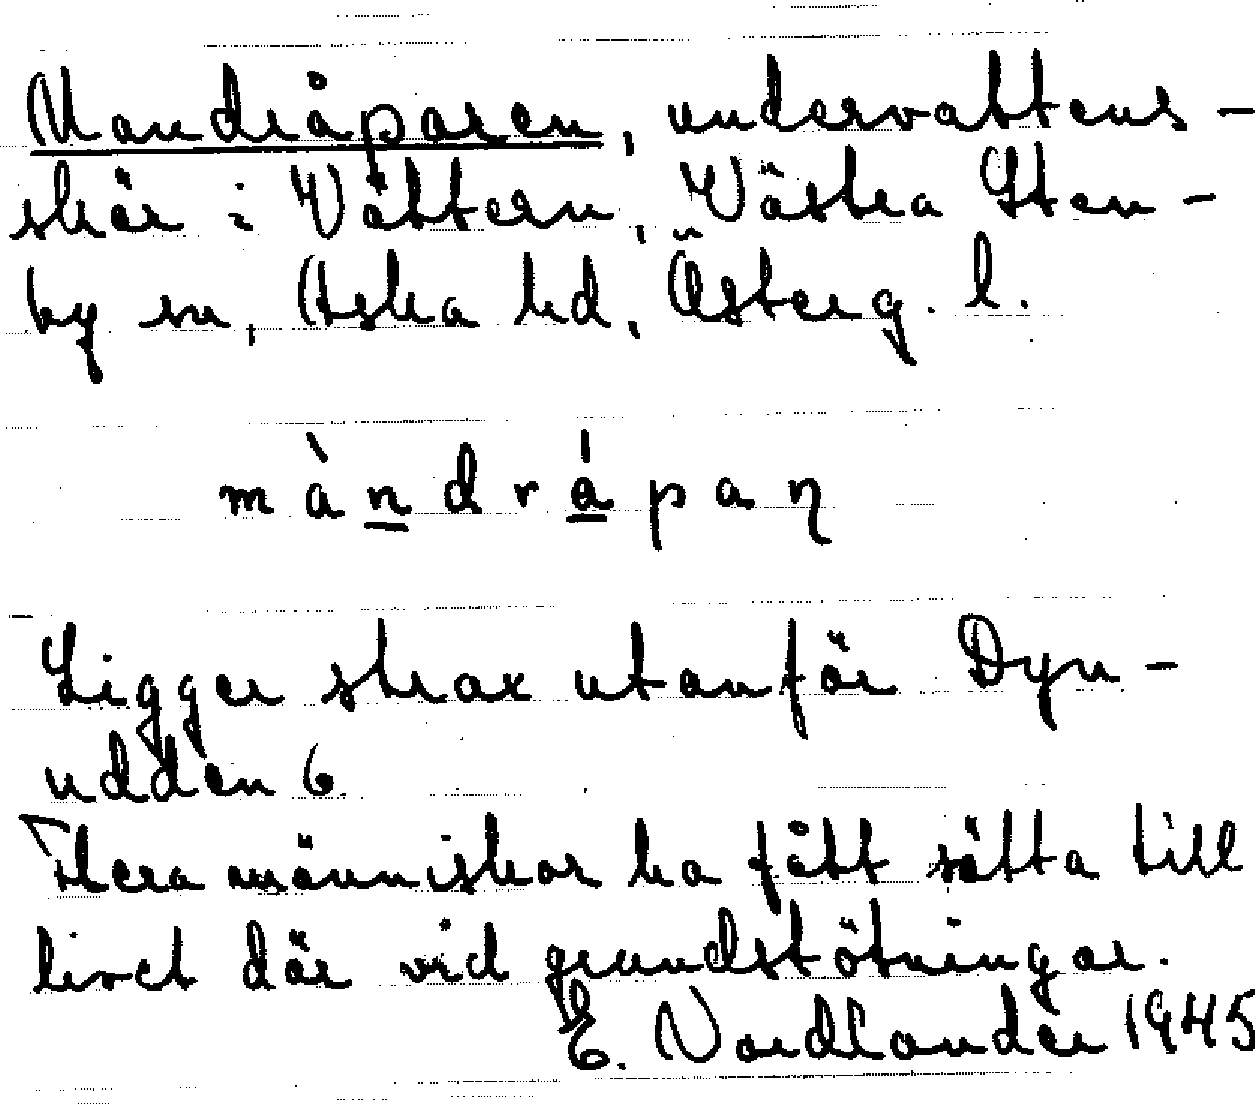 Mandråparen, undervattens-
skär i Vättern, Västra Sten-
by sn, Aska hd, Österg. l.
màndrápaɳ
Ligger strax utanför Dyn-
udden 6.
Flera människor ha fått sätta till
livet där vid grundstötningar.
E. Nordlander 1945